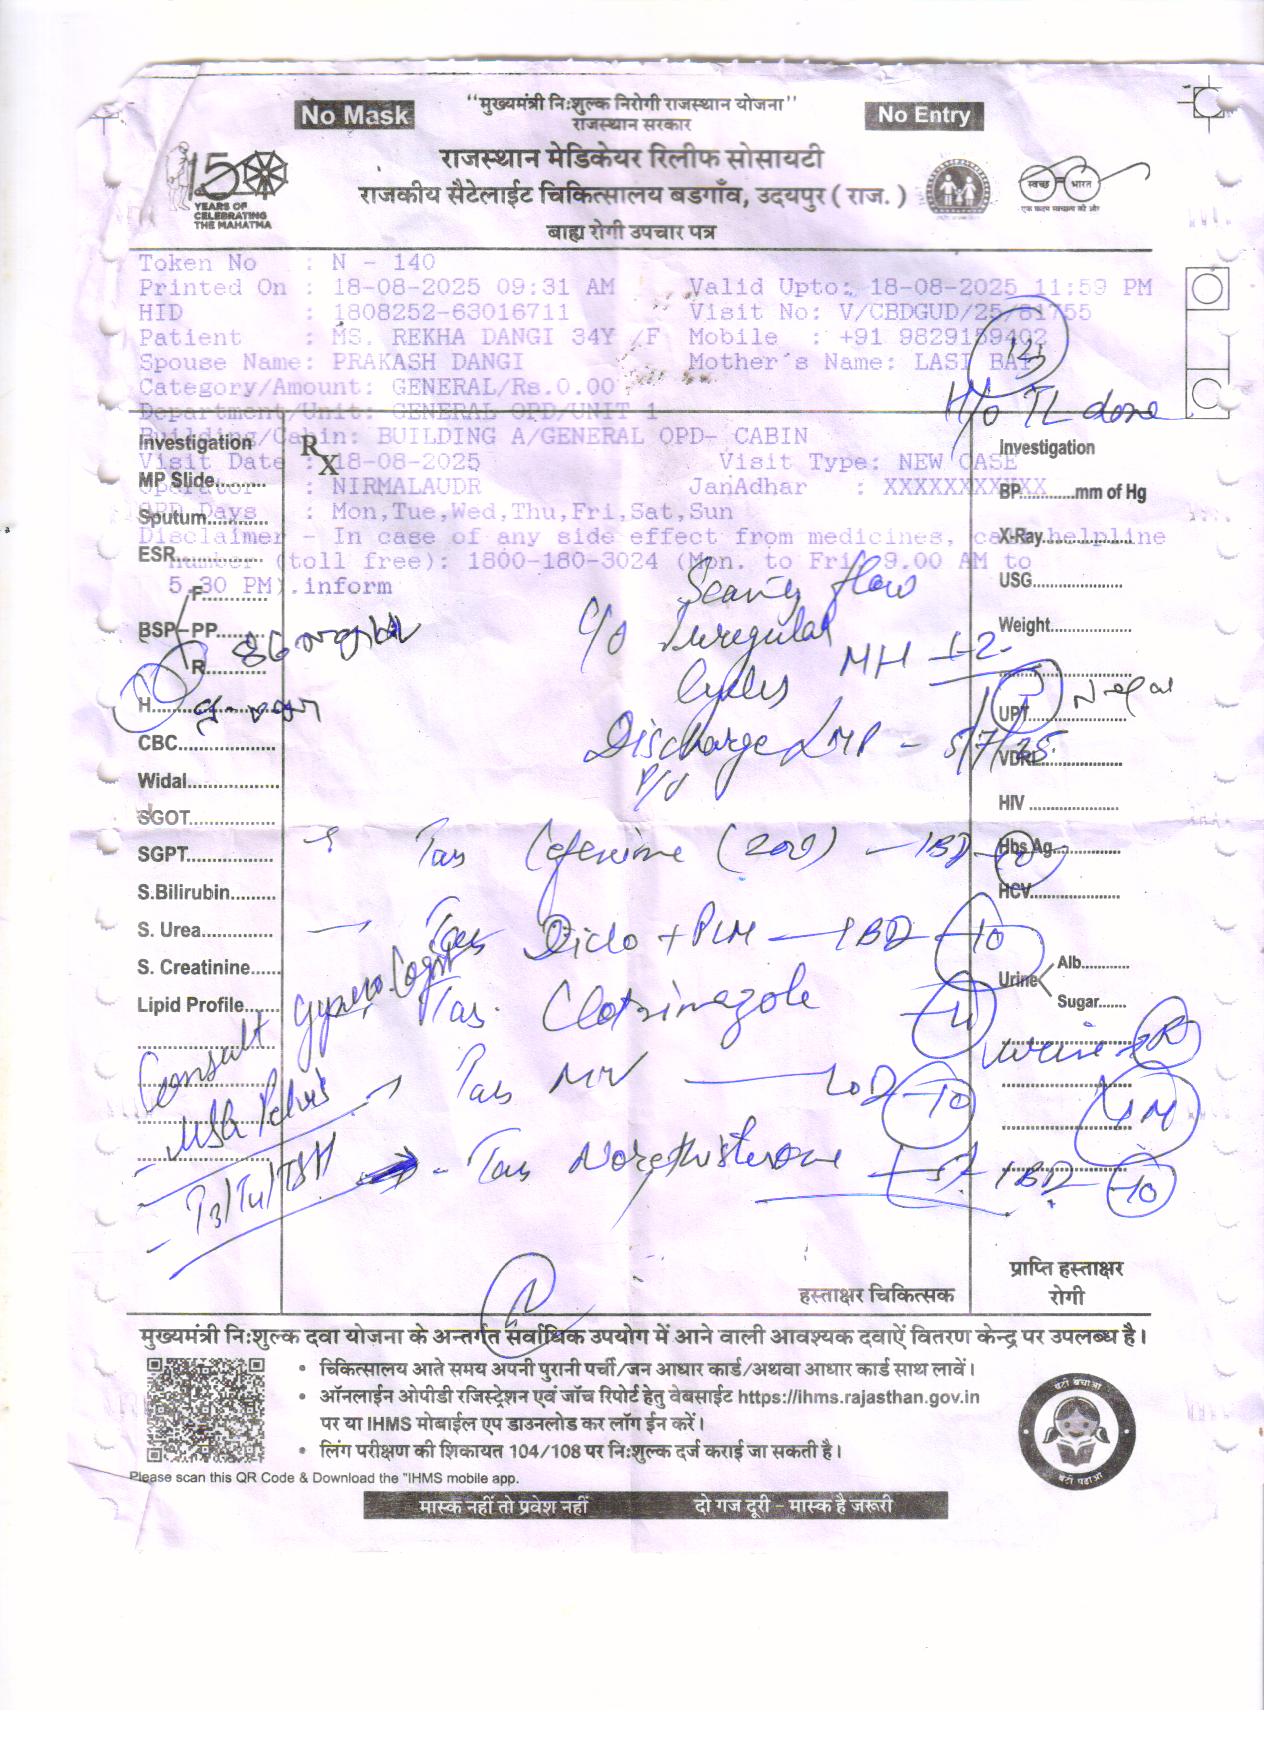 No Mask
"मुख्यमंत्री निःशुल्क निरोगी राजस्थान योजना"
राजस्थान सरकार
No Entry
राजस्थान मेडिकेयर रिलीफ सोसायटी
राजकीय सैटेलाईट चिकित्सालय बडगाँव, उदयपुर ( राज. )
बाह्य रोगी उपचार पत्र
150
YEARS OF
CELEBRATING
THE MAHATMA
स्वच्छ भारत
एक कदम स्वच्छता की ओर
Token No : N - 140
Printed On : 18-08-2025 09:31 AM Valid Upto: 18-08-2025 11:59 PM
HID : 1808252-63016711 Visit No: V/CBDGUD/25/61755
Patient : MS. REKHA DANGI 34Y /F Mobile : +91 9829159402
Spouse Name: PRAKASH DANGI Mother's Name: LASI BAI
Category/Amount: GENERAL/Rs.0.00
Department/Unit: GENERAL OPD/UNIT 1
H/o TL done
Building/Cabin: BUILDING A/GENERAL OPD- CABIN
Visit Date : 18-08-2025 Visit Type: NEW CASE
Operator : NIRMALAUDR JanAdhar : XXXXXXXXXXX
OPD Days : Mon,Tue,Wed,Thu,Fri,Sat,Sun
Disclaimer - In case of any side effect from medicines, call helpline
number (toll free): 1800-180-3024 (Mon. to Fri. 9.00 AM to
5.30 PM).inform
Rx
Investigation
MP Slide..........
Sputum............
ESR................
BSP
F............
PP..........
R............
H.....................
CBC...................
Widal..................
SGOT.................
SGPT.................
S.Bilirubin.........
S. Urea..............
S. Creatinine......
Lipid Profile.......
Investigation
BP............mm of Hg
X-Ray..................
USG.....................
Weight.................
UPT.....................
VDRL..................
HIV ....................
Hbs Ag...............
HCV....................
Urine
Alb...........
Sugar.......
flow
C/o Irregular
Cycles MH
Discharge LMP - 5/7/25
P/V
Tab Cefexime (200) - 1BD - 10
Tab Diclo + PCM - 1BD - 10
Tab. Clotrimazole
Tab MV
Tab Norethisterone 1BD - 10
Consult Gynecologist
USG Pelvis
T3/T4/TSH
हस्ताक्षर चिकित्सक
प्राप्ति हस्ताक्षर
रोगी
मुख्यमंत्री निःशुल्क दवा योजना के अन्तर्गत सर्वाधिक उपयोग में आने वाली आवश्यक दवाऐं वितरण केन्द्र पर उपलब्ध है।
• चिकित्सालय आते समय अपनी पुरानी पर्ची/जन आधार कार्ड/अथवा आधार कार्ड साथ लावें।
• ऑनलाईन ओपीडी रजिस्ट्रेशन एवं जॉच रिपोर्ट हेतु वेबसाईट https://ihms.rajasthan.gov.in
पर या IHMS मोबाईल एप डाउनलोड कर लॉग ईन करें।
• लिंग परीक्षण की शिकायत 104/108 पर निःशुल्क दर्ज कराई जा सकती है।
Please scan this QR Code & Download the "IHMS mobile app.
बेटी बचाओ
बेटी पढ़ाओ
मास्क नहीं तो प्रवेश नहीं दो गज दूरी - मास्क है जरूरी